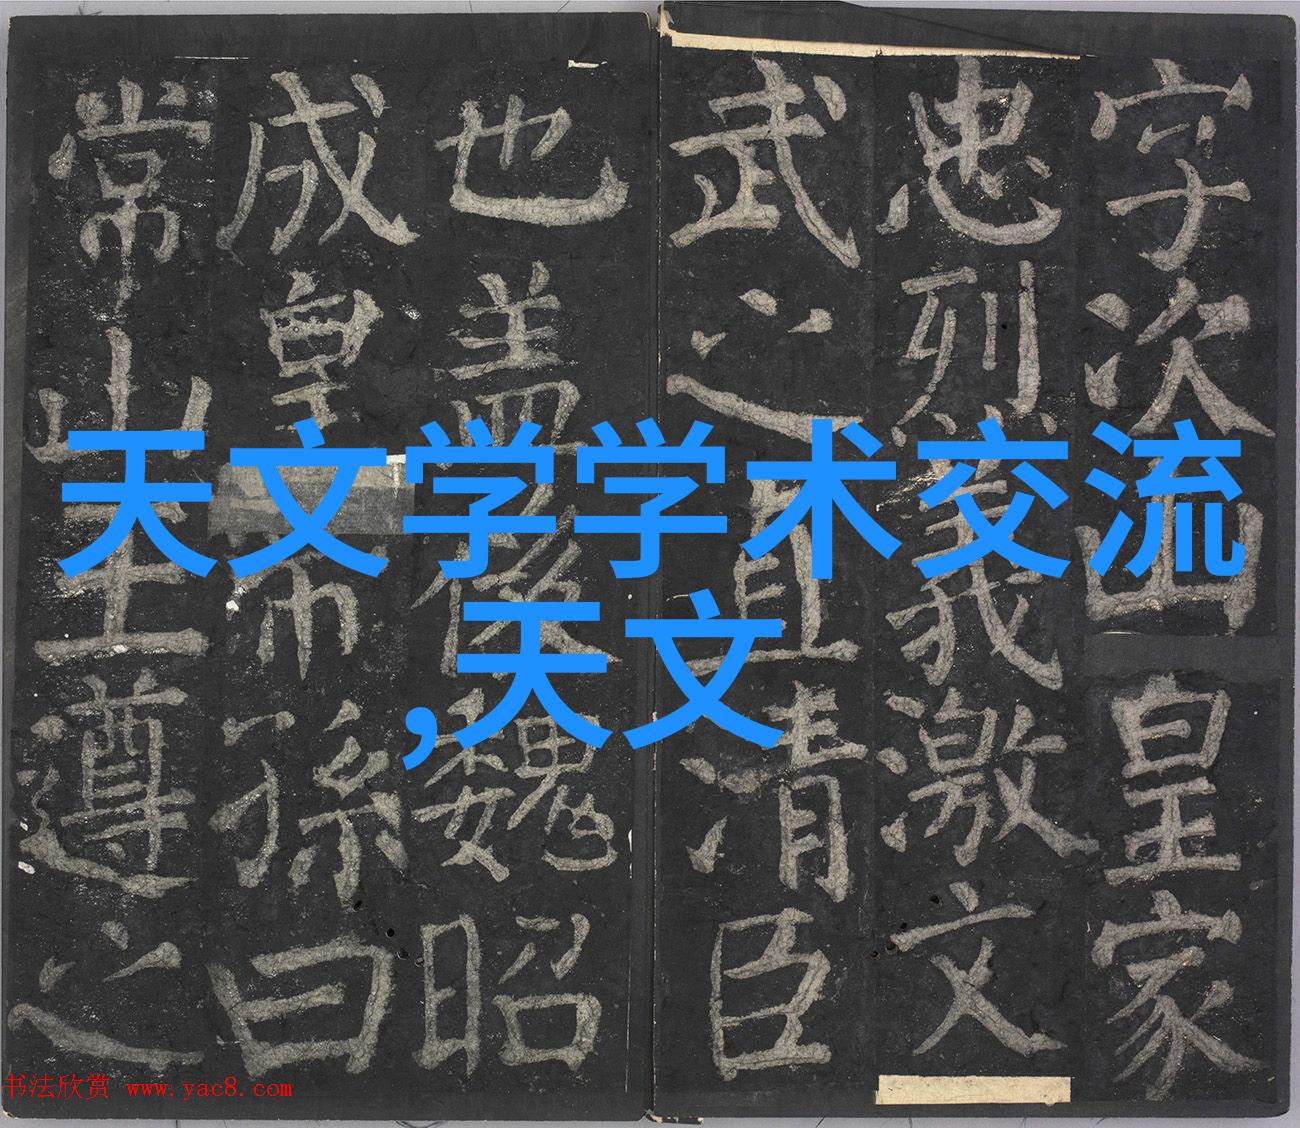 字次山皇家
忠烈義激文
武之直清臣
也盖後魏昭
成皇帝孫曰
常山王遵之
天文学学术交流
,天文
书法欣赏 www.yac8.com